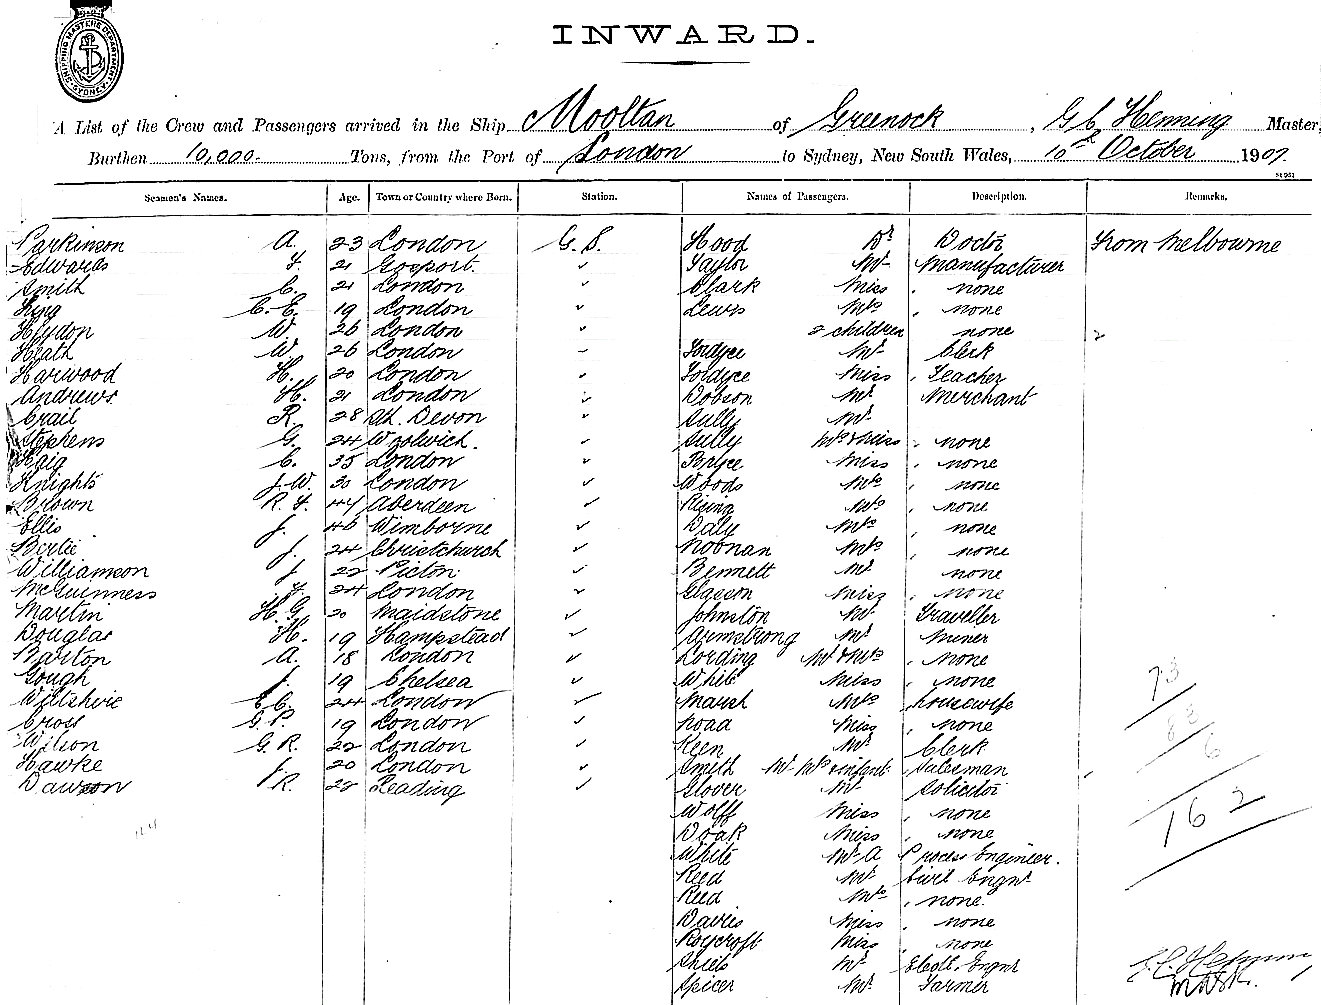 SHIPPING MASTERS DEPARTMENT SYDNEY
INWARD.
A List of the Crew and Passengers arrived in the Ship Mooltan of Greenock, Hemming Master,
Burthen 10,000. Tons, from the Port of London to Sydney, New South Wales, 10th October 1907
Seamen's Names. Age. Town or Country where Born. Station. Names of Passengers. Description. Remarks.
Parkinson A. 23 London G.S. Hood Dr Doctor From Melbourne
Edwards F. 21 Gosport. ✓ Taylor Mr Manufacturer
Smith C. 21 London ✓ Clark Miss none
King C.E. 19 London ✓ Lewis Mrs none
Heydon W. 26 London ✓ 2 children none 2
Heath W. 26 London ✓ Fordyce Mr Clerk
Harwood H. 20 London ✓ Fordyce Miss Teacher
Andrews H. 21 London ✓ Dobson Mr Merchant
Crail R. 28 Devon ✓ Sully Mr
Stephens G. 24 Woolwich. ✓ Sully Mrs & Miss none
Haig C. 35 London ✓ Bryce Miss none
Knights J.W. 30 London ✓ Woods Mrs none
Brown R.F. 44 Aberdeen ✓ Rising Mrs none
Ellis J. 46 Wimborne ✓ Daly Mrs none
Bertie J. 24 Christchurch ✓ Noonan Mrs none
Williamson J 22 Picton ✓ Bennett Mr none
McGuinness F. 24 London ✓ Glasson Miss none
Martin H.G. 20 Maidstone ✓ Johnston Mr Traveller
Douglas H. 19 Hampstead ✓ Armstrong Mr Miner
Barton A. 18 London ✓ Lording Mr & Mrs none
Gough J. 19 Chelsea ✓ White Miss none
Wiltshire E.C. 24 London ✓ Marsh Mrs housewife
Cross G.P. 19 London ✓ Noad Miss none
Wilson G.R. 22 London ✓ Keen Mr Clerk
Hawke J. 20 London ✓ Smith Mr Mrs & infant Salesman
Dawson R. 28 Reading ✓ Glover Mr Solicitor
Wolff Miss none
Doak Miss none
White Mr A Process Engineer.
Reed Mr Civil Engnr
Reed Mrs none.
Davies Miss none
Roycroft Miss none
Shiels Mr Elect. Engnr
Spicer Mr Farmer
73
83
6
162